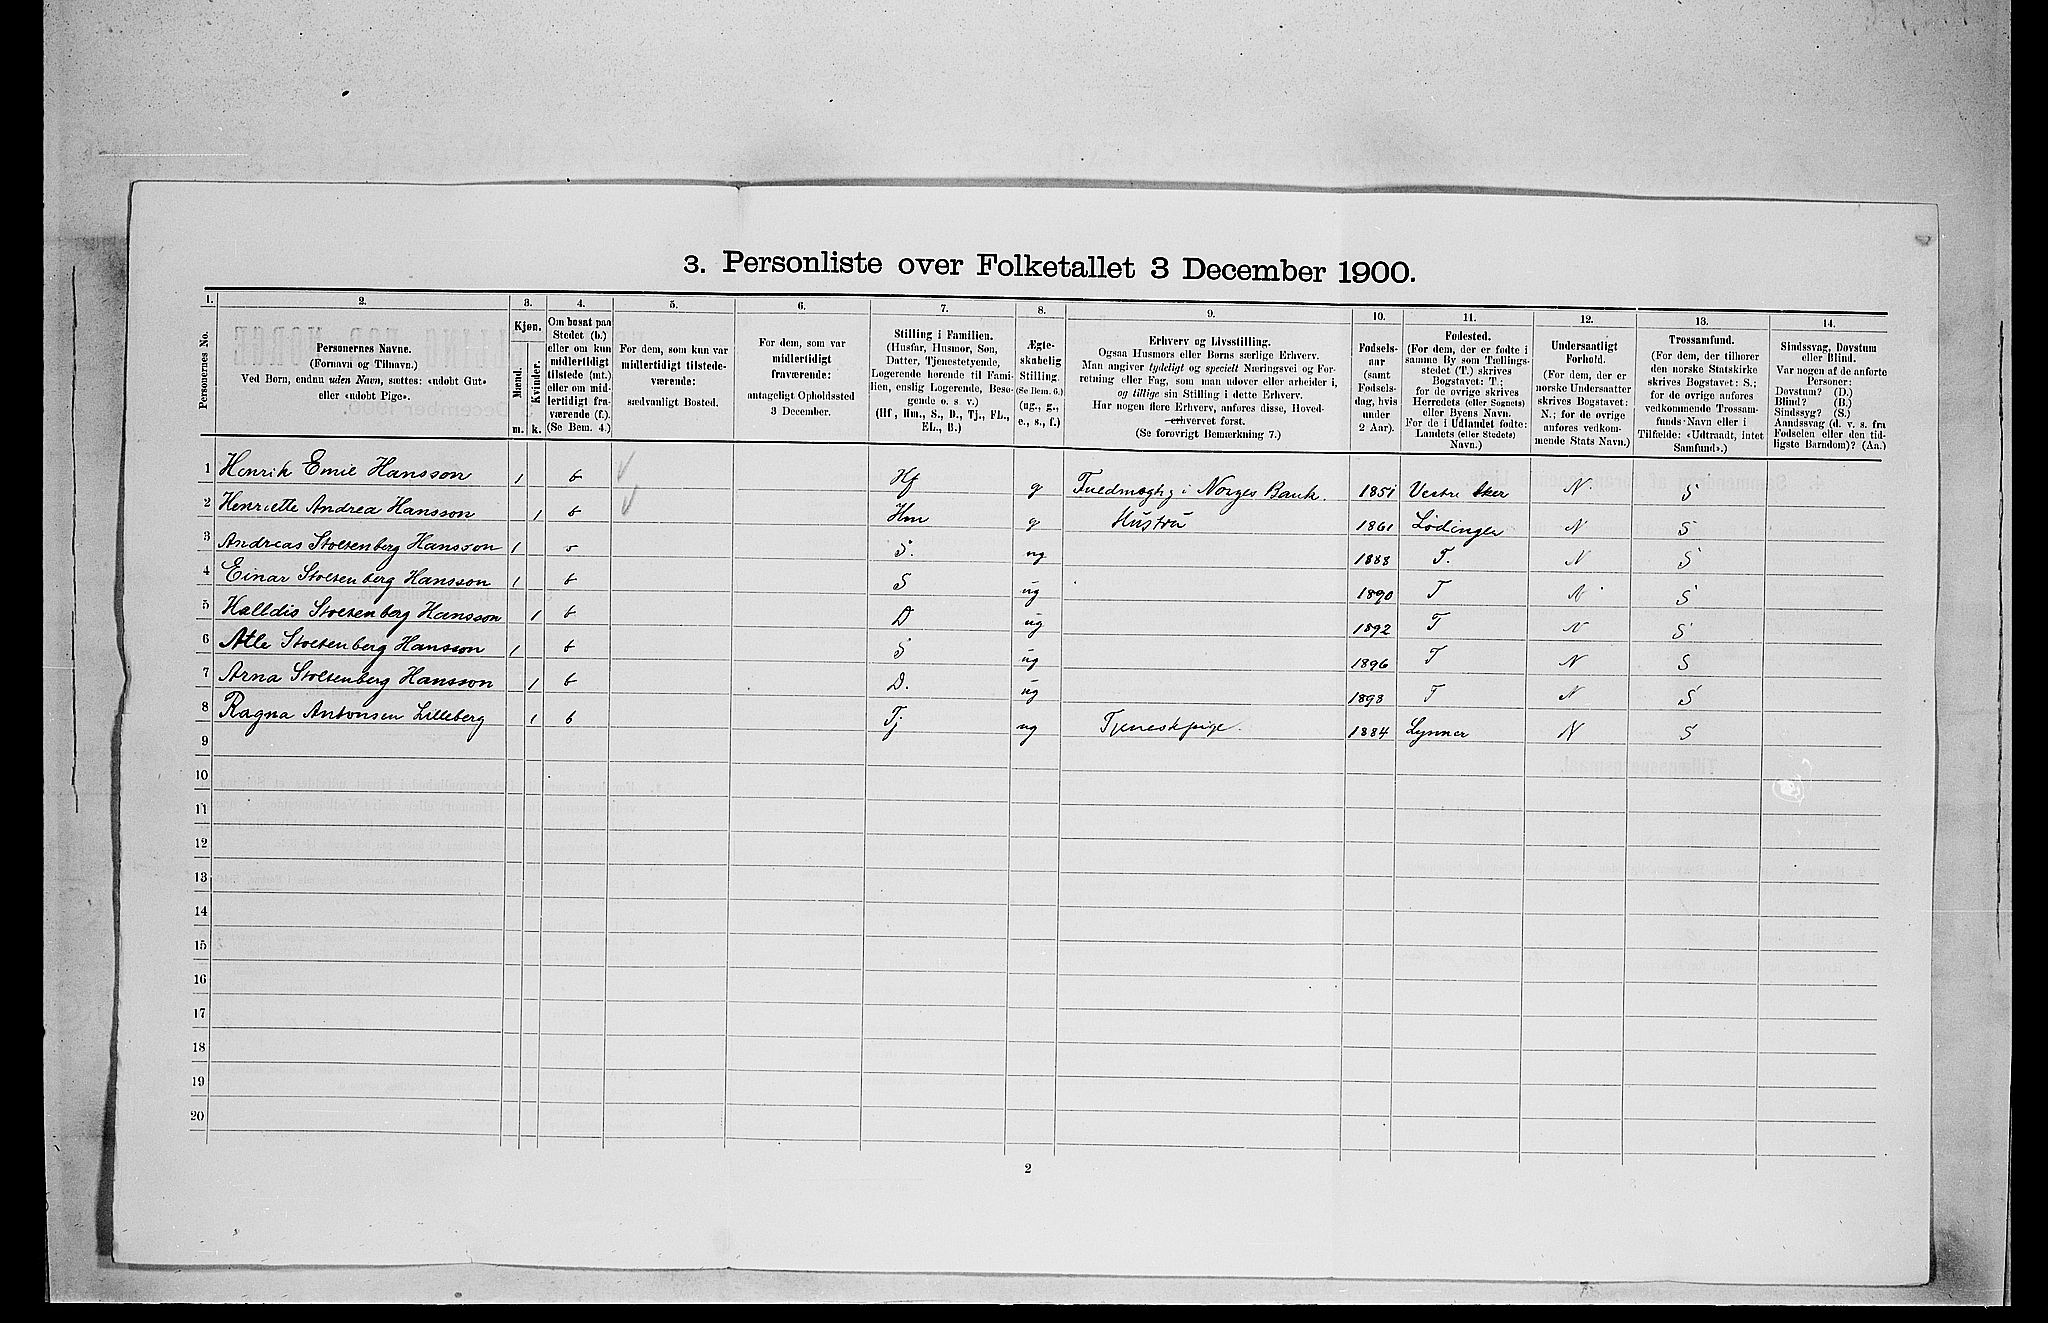 3. Personliste over Folketallet 3 December 1900.
1. 2. 3. 4. 5. 6. 7. 8. 9. 10. 11. 12. 13. 14.
Personernes No.
Personernes Navne.
(Fornavn og Tilnavn.)
Ved Børn, endnu uden Navn, sættes: «udøbt Gut»
eller «udøbt Pige».
Kjøn.
Mænd.
Kvinder.
m. k.
Om bosat paa
Stedet (b.)
eller om kun
midlertidigt
tilstede (mt.)
eller om mid-
lertidigt fra-
værende (f.).
(Se Bem. 4.)
For dem, som kun var
midlertidigt tilstede-
værende:
sædvanligt Bosted.
For dem, som var
midlertidigt
fraværende:
antageligt Opholdssted
3 December.
Stilling i Familien.
(Husfar, Husmor, Søn,
Datter, Tjenestetyende,
Logerende hørende til Fami-
lien, enslig Logerende, Besø-
gende o. s. v.)
(Hf, Hm., S., D., Tj., FL.,
EL., B.)
Ægte-
skabelig
Stilling.
(Se Bem. 6.)
(ug., g.,
e., s., f.)
Erhverv og Livsstilling.
Ogsaa Husmors eller Børns særlige Erhverv.
Man angiver tydeligt og specielt Næringsvei og For-
retning eller Fag, som man udøver eller arbeider i,
og tillige sin Stilling i dette Erhverv.
Har nogen flere Erhverv, anføres disse, Hoved-
erhvervet først.
(Se forøvrigt Bemærkning 7.)
Fødsels-
aar
(samt
Fødsels-
dag, hvis
under
2 Aar).
Fødested.
(For dem, der er fødte i
samme By som Tællings-
stedet (T.) skrives
Bogstavet: T.;
for de øvrige skrives
Herredets (eller Sognets)
eller Byens Navn.
For de i Udlandet fødte:
Landets (eller Stedets)
Navn.)
Undersaatligt
Forhold.
(For dem, der er
norske Undersaatter
skrives Bogstavet:
N.; for de øvrige
anføres vedkom-
mende Stats Navn.)
Trossamfund.
(For dem, der tilhører
den norske Statskirke
skrives Bogstavet: S.;
for de øvrige anføres
vedkommende Trossam-
funds-Navn eller i
Tilfælde: «Udtraadt, intet
Samfund».)
Sindssvag, Døvstum
eller Blind.
Var nogen af de anførte
Personer:
Døvstum? (D.)
Blind? (B.)
Sindssyg? (S.)
Aandssvag (d. v. s. fra
Fødselen eller den tid-
ligste Barndom)? (Aa.)
1 Henrik Emil Hansson 1 b Hf g Fuldmægtig i Norges Bank. 1851 Vestre Aker N. S
2 Henriette Andrea Hansson 1 b Hm g Hustru 1861 Lødingen N S
3 Andreas Stoltenberg Hansson 1 S. ug 1888 T. N S
4 Einar Stoltenberg Hansson 1 b S ug 1890 T N S
5 Halldis Stoltenberg Hansson 1 b D ug 1892 T N S
6 Atle Stoltenberg Hansson 1 b S ug 1896 T N S
7 Arna Stoltenberg Hansson 1 b D. ug 1898 T N S
8 Ragna Antonsen Lilleberg 1 b Tj ug Tjenestepige. 1884 Lynner N S
9
10
11
12
13
14
15
16
17
18
19
20
2